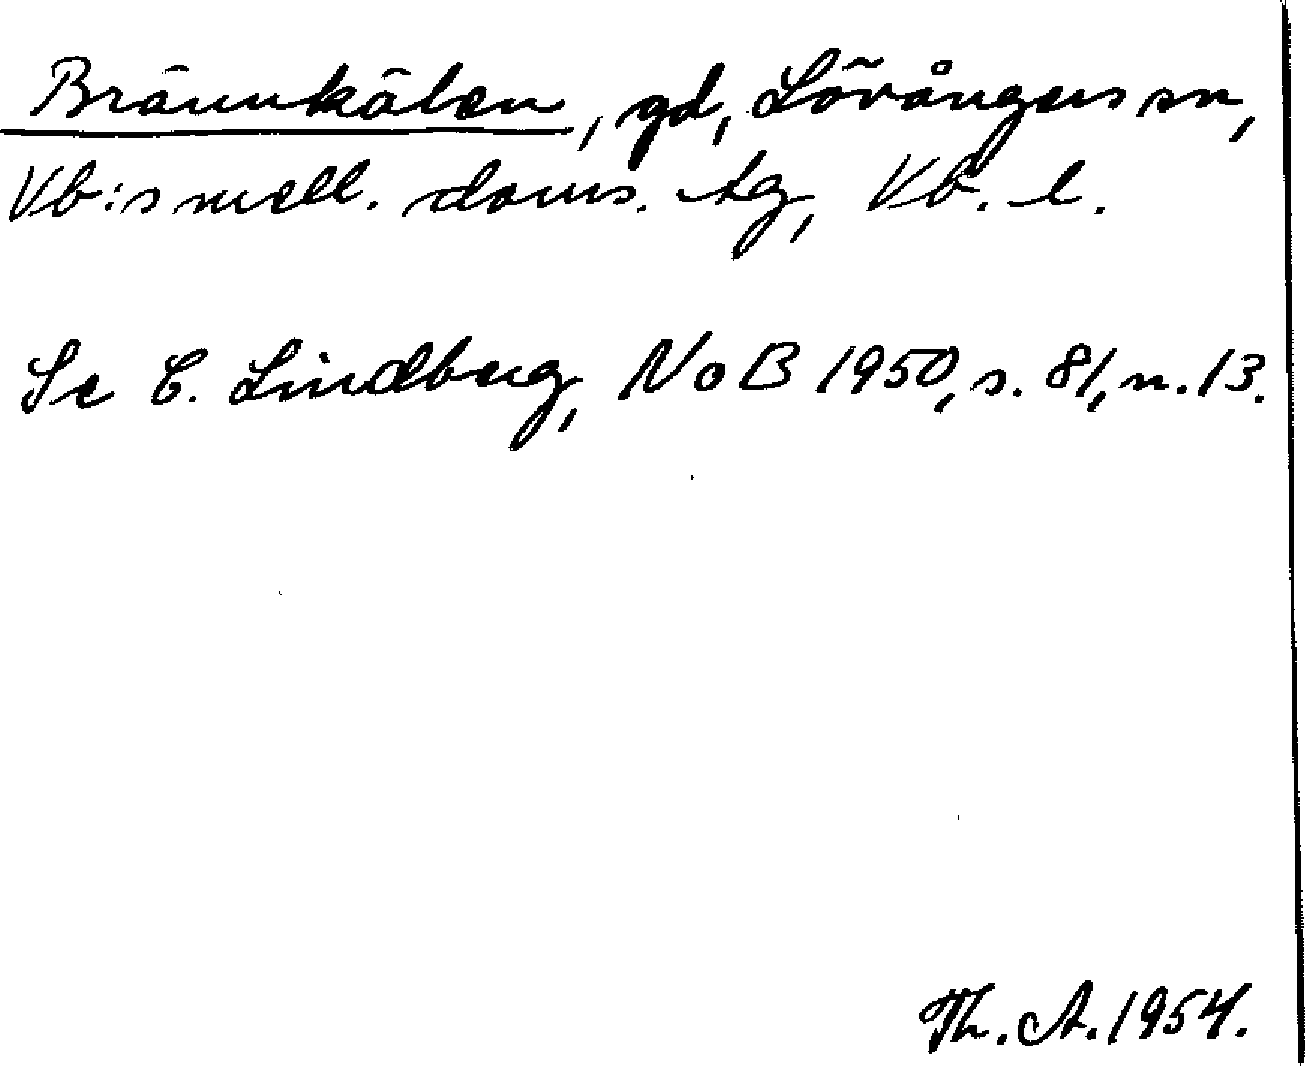 Brännkälen, gd, Lövångers sn,
Vb:s mell. doms. tg, Vb. l.
Se C. Lindberg, NoB 1950, s. 81, n. 13.
Th. A. 1954.